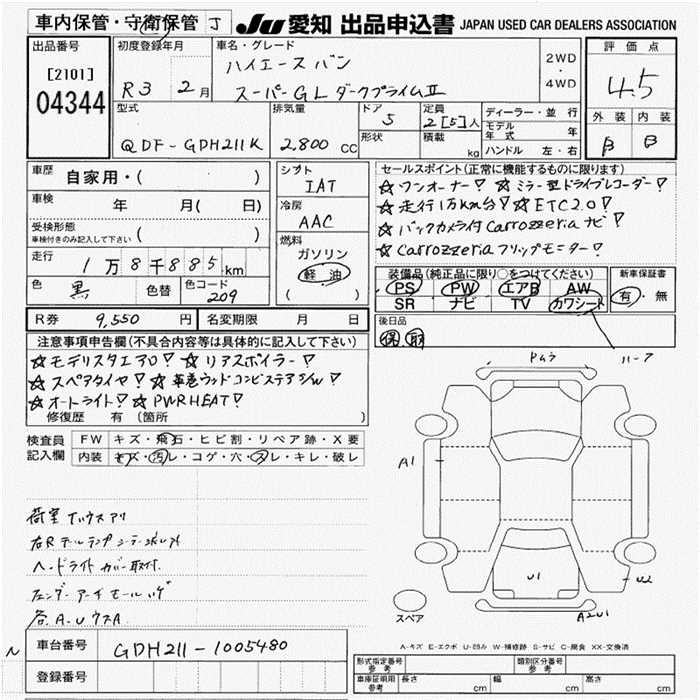 車内保管・守衛保管 J
JU 愛知 出品申込書 JAPAN USED CAR DEALERS ASSOCIATION
出品番号
[2101]
04344
初度登録年月
R3 2月
車名・グレード
ハイエース バン
スーパーGL ダークプライムⅡ
2WD
・
4WD
評価点
4.5
外装 内装
B B
型式
QDF-GDH211K
排気量
2,800 cc
ドア
5
形状
定員
2[5]人
積載
kg
ディーラー・並行
モデル年式 年
ハンドル 左・右
車歴
自家用・( )
車検
年 月( 日)
受検形態
車検付きのみ記入して下さい ( )
走行
1万8千885km
色 黒 色替 色コード 209
シフト
IAT
冷房
AAC
燃料
ガソリン
軽油
( )
セールスポイント(正常に機能するものに限ります)
☆ワンオーナー! ☆ミラー型ドライブレコーダー!
☆走行1万km台! ☆ETC2.0!
☆バックカメラ付Carrozzeriaナビ!
☆Carrozzeriaフリップモニター!
装備品(純正品に限り○をつけてください)
PS PW エアB AW
SR ナビ TV カワシート
新車保証書
有・無
後日品
保 取
R券 9,550 円 名変期限 月 日
注意事項申告欄(不具合内容等は具体的に記入して下さい)
☆モデリスタエアロ! ☆リアスポイラー!
☆スペアタイヤ! ☆革巻ウッドコンビステアリング!
☆オートライト! ☆PWRHEAT!
修復歴 有(箇所 )
検査員
記入欄
FW キズ・飛石・ヒビ割・リペア跡・X要
内装 キズ・汚レ・コゲ・穴・スレ・キレ・破レ
ハーフ
A1
U1
U2
A2U1
スペア
荷室
右Rテールランプ
ヘッドライトカバー取付
フェンダーアーチモール
各A・Uウス
A-キズ E-エクボ U-凹み W-補修跡 S-サビ C-腐食 XX-交換済
車台番号 GDH211-1005480
登録番号
形式指定番号
参考
類別区分番号
参考
車庫証明用
参考
長さ cm 幅 cm 高さ cm